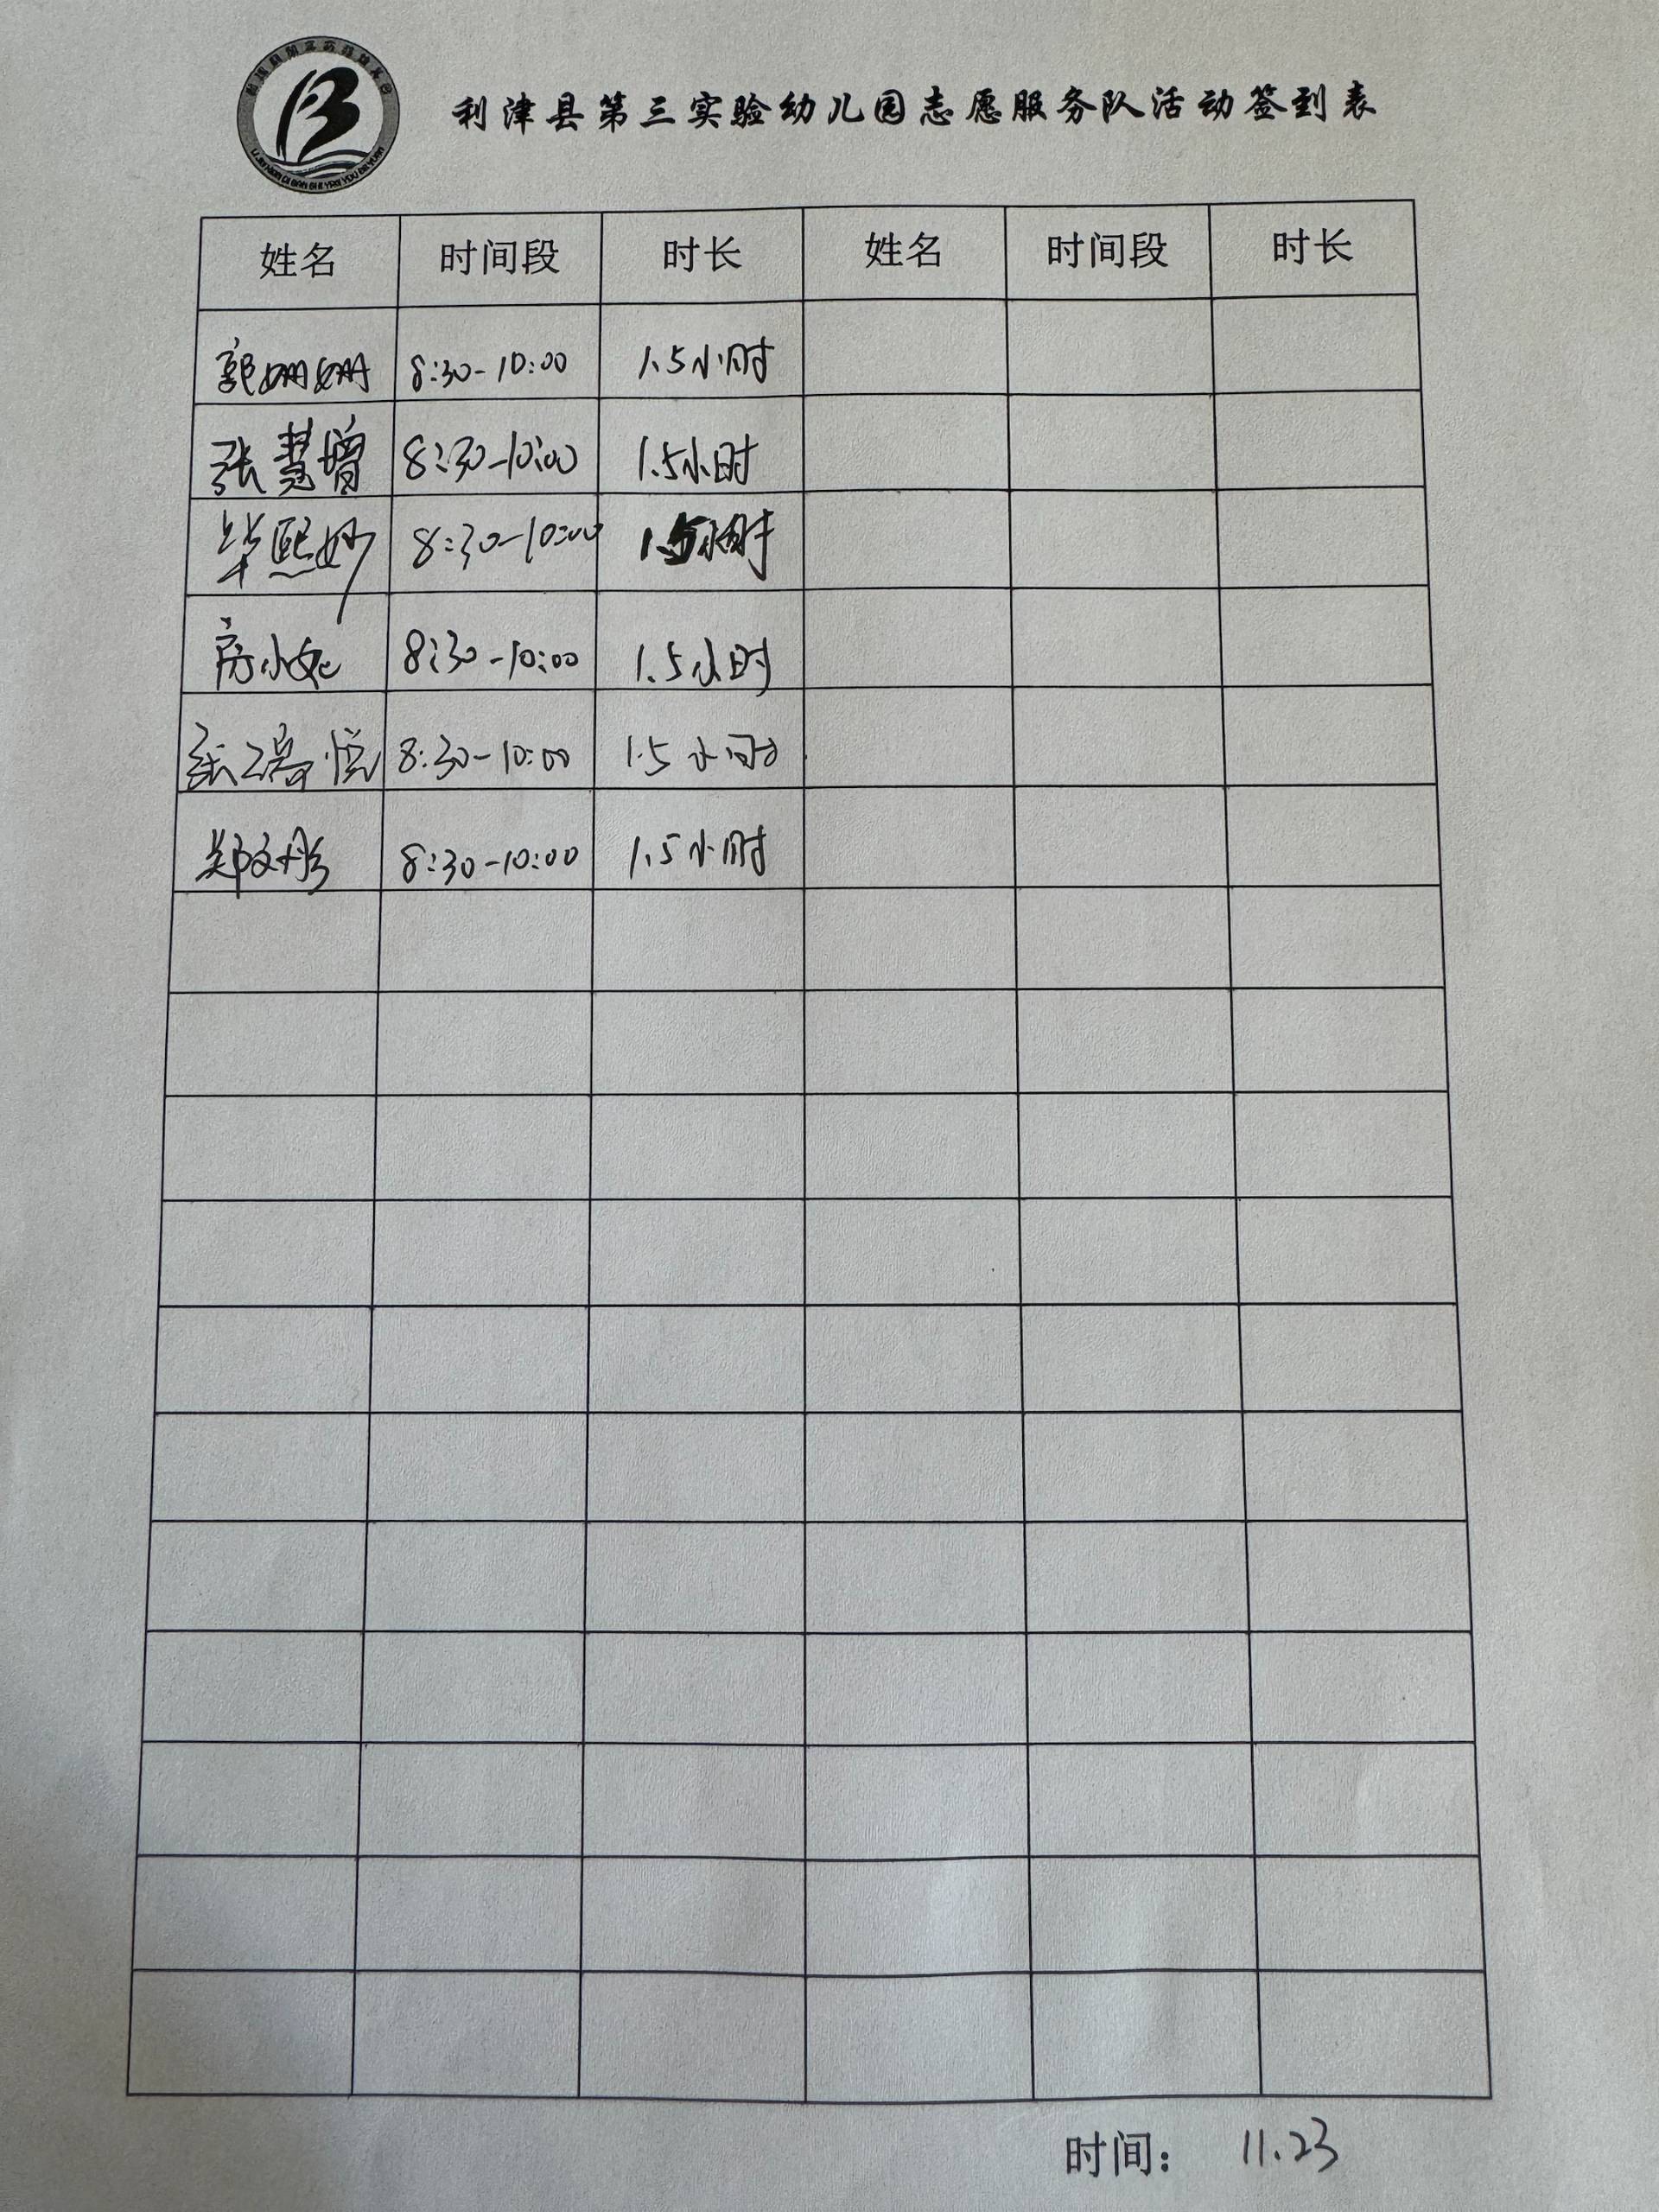 利津县第三实验幼儿园志愿服务队活动签到表
姓名 时间段 时长 姓名 时间段 时长
郭姗姗 8:30-10:00 1.5小时
张慧增 8:30-10:00 1.5小时
毕熙妙 8:30-10:00 1.5小时
房小妮 8:30-10:00 1.5小时
张瑞悦 8:30-10:00 1.5小时
郑文彤 8:30-10:00 1.5小时
时间: 11.23